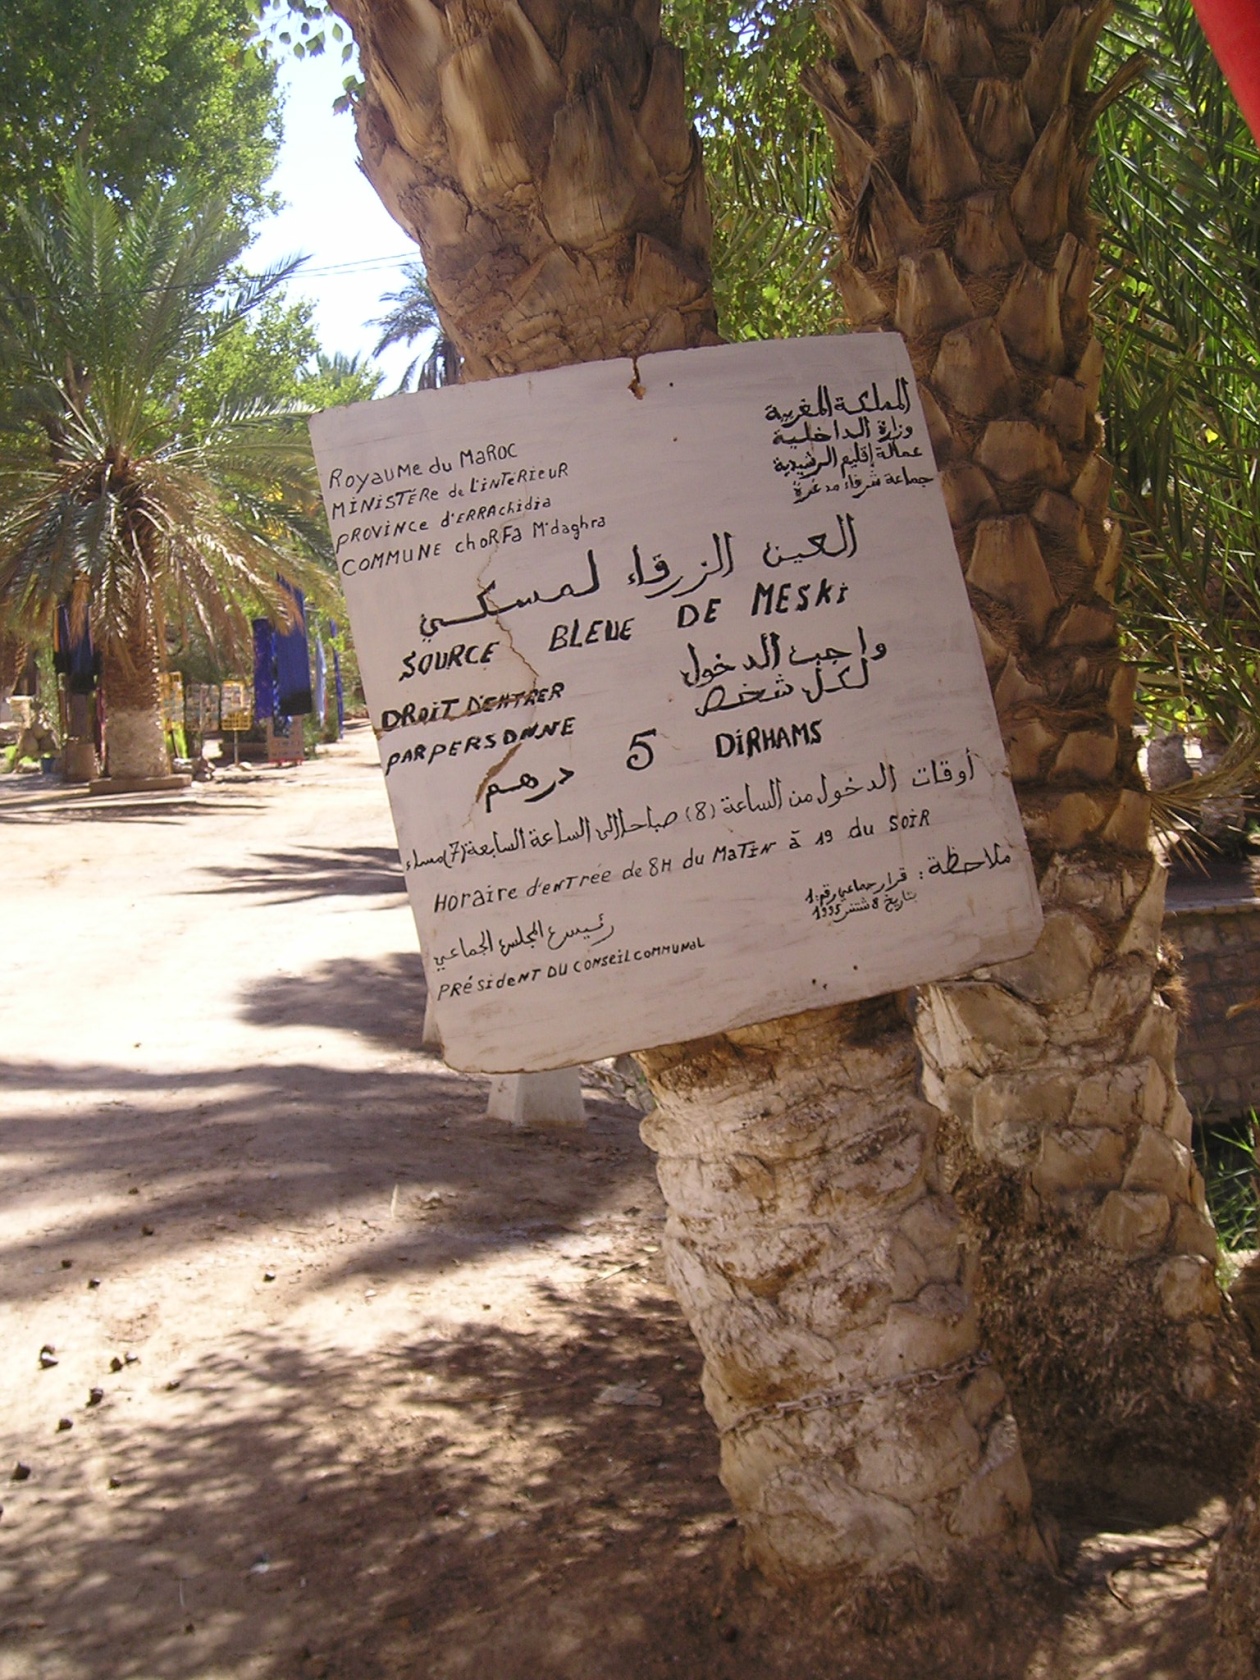 Royaume du Maroc
MINISTÈRe de L'iNTÉRiEUR
PROViNce d'ERRAchidia
COMMUNE choRFa M'daghra
المملكة المغربية
وزارة الداخلية
عمالة إقليم الرشيدية
جماعة شرفاء مدغرة
العين الزرقاء لمسكي
SOURCE BLEUE DE MESKi
واجب الدخول
لكل شخص
DROiT D'ENTRER
PAR PERSONNE
5 DiRHAMS
درهم
أوقات الدخول من الساعة (8) صباحا إلى الساعة السابعة (7) مساء
Horaire d'enTrée de 8H du MaTiN à 19 du SoiR
ملاحظة: قرار جماعي رقم: 1
بتاريخ 8 شتنبر 1995
رئيس المجلس الجماعي
PRÉSideNT DU CONSeiL COMMUNAL